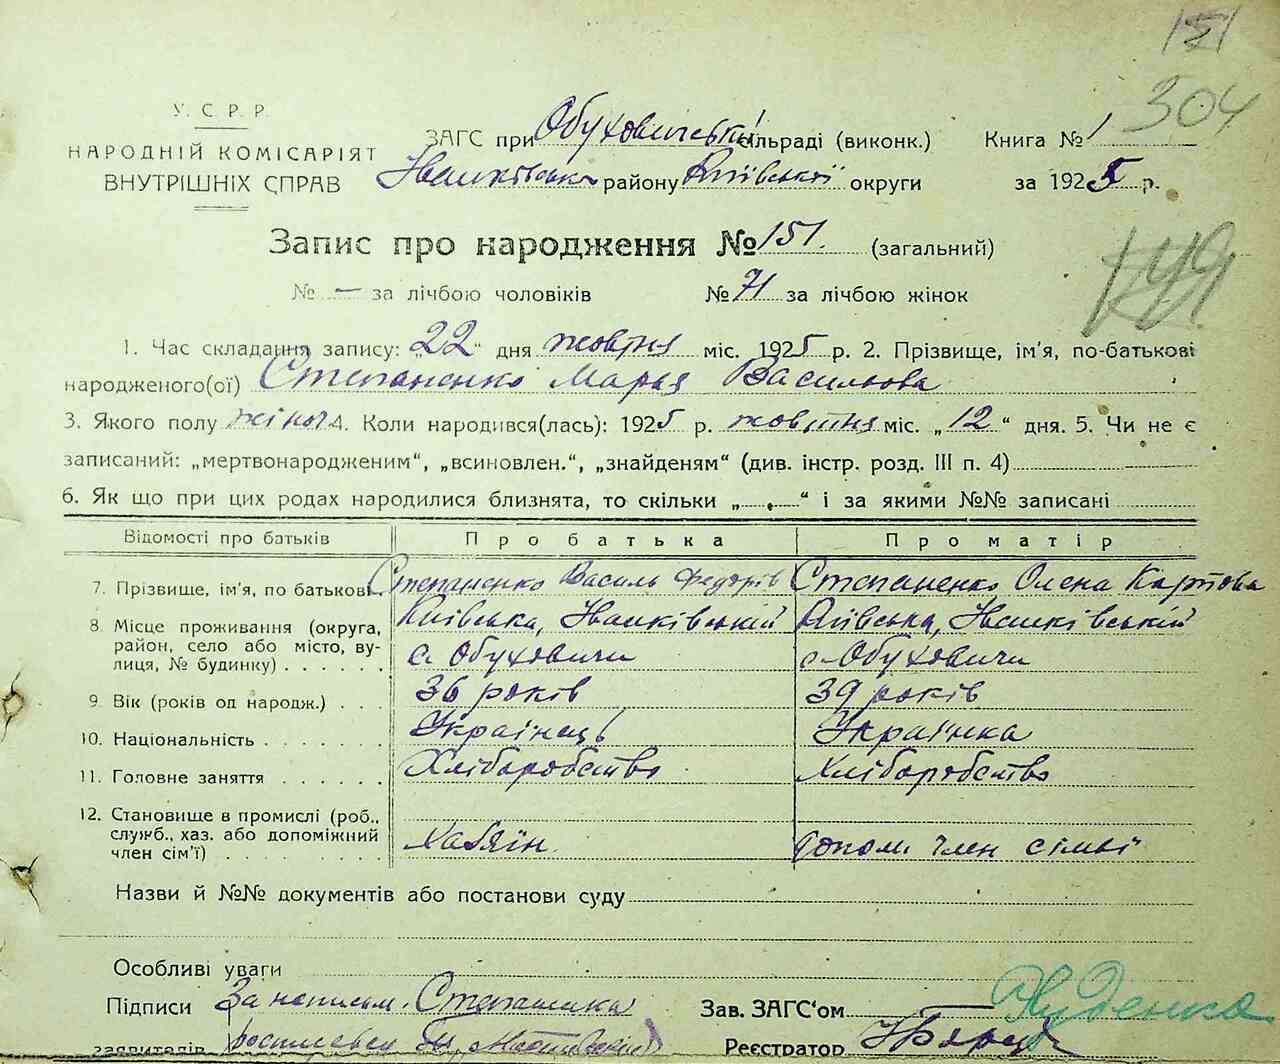 151
304
У.С.Р.Р.
НАРОДНІЙ КОМІСАРІЯТ
ВНУТРІШНІХ СПРАВ
ЗАГС при Обуховичській сільраді (виконк.) Книга № 1
Іванківськ району Київської округи за 1925 р.
Запис про народження № 151. (загальний)
149
№ — за лічбою чоловіків № 71 за лічбою жінок
1. Час складання запису: 22" дня жовтня міс. 1925 р. 2. Прізвище, ім'я, по-батькові
народженого(ої) Степаненко Марья Васильова
3. Якого полу жіноч 4. Коли народився(лась): 1925 р. жовтня міс. „12" дня. 5. Чи не є
записаний: „мертвонародженим", „всиновлен.", „знайденям" (див. інстр. розд. III п. 4)
6. Як що при цих родах народилися близнята, то скільки „ " і за якими №№ записані
Відомості про батьків Про батька Про матір
7. Прізвище, ім'я, по батькові Степаненко Василь Федорів Степаненко Олена Карпова
8. Місце проживання (округа, район, село або місто, вулиця, № будинку) Київська, Іванківський Київська, Іванківський
с. Обуховичи с. Обуховичи
9. Вік (років од народж.) 36 років 39 років
10. Національність Українець Українка
11. Головне заняття Хліборобство Хліборобство
12. Становище в промислі (роб.,
служб., хаз. або допоміжний
член сім'ї) Хазяїн допом член сімьї
Назви й №№ документів або постанови суду
Особливі уваги
Підписи Зав. ЗАГС'ом
заявителів Реєстратор